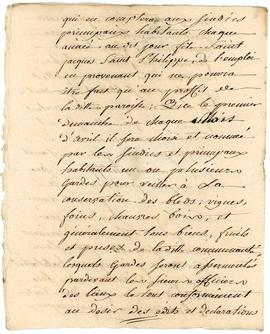 qui en comptera aux sindics
principaux habitants chaque
année au dit jour fête Saint
jacques Saint Philippe; de l'employ
en provenant qui ne pourra
être fait qui au proffit de
la ditte paroisse; Que le premier
dimanche de chaque Mois
d'avril il sera choisi et nommé
par les sindics et principaux
habitants un ou plusieurs
Gardes pour veiller à La
conservation des bleds, vignes,
foins, chanvres bois, et
généralement tous biens, fruits
et de la ditte communauté
lesquels Gardes seront
pardevant les officiers
des lieux le tout conformement
au desir des edits et declarations